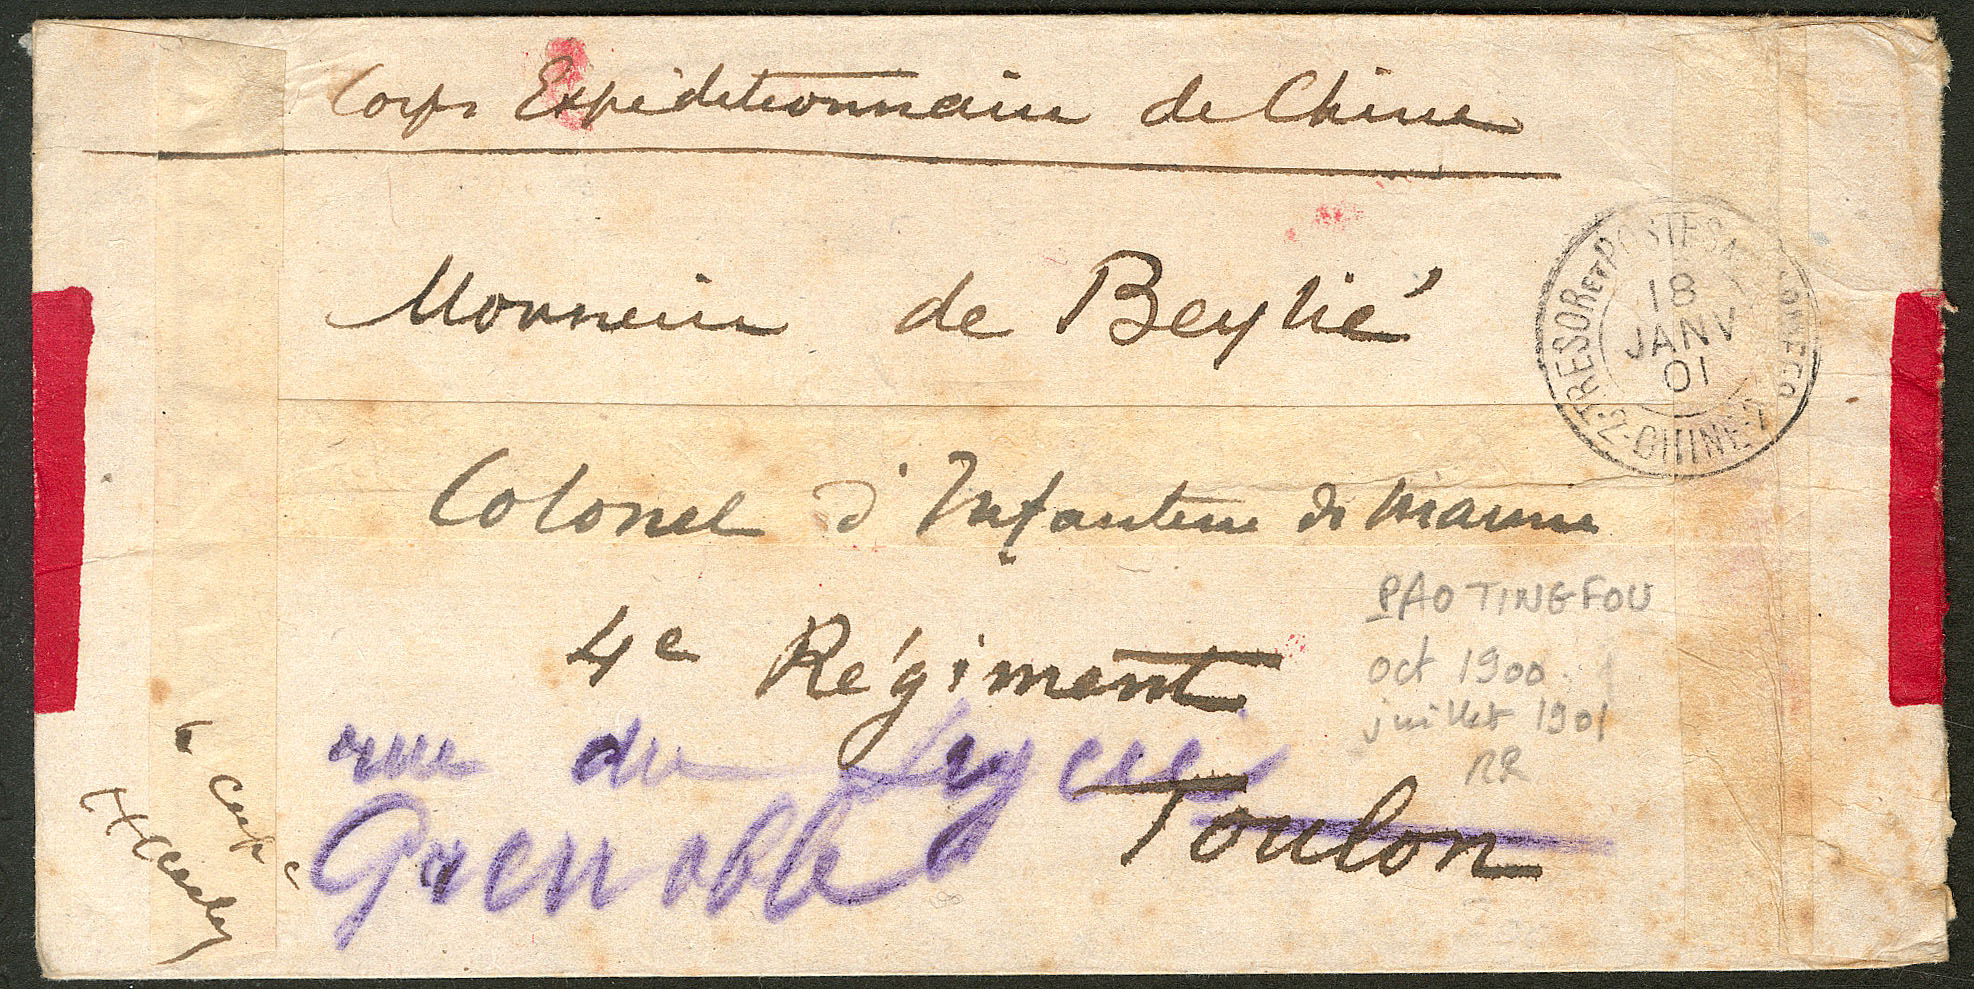 Corps Expéditionnaire de Chine
Monsieur de Beylié
TRESOR ET POSTES AUX
CHINE
18
JANV
01
Colonel d'Infanterie de Marine
4e Régiment
PAO TING FOU
oct 1900
juillet 1901
RR
rue du Lycée
Toulon
Grenoble